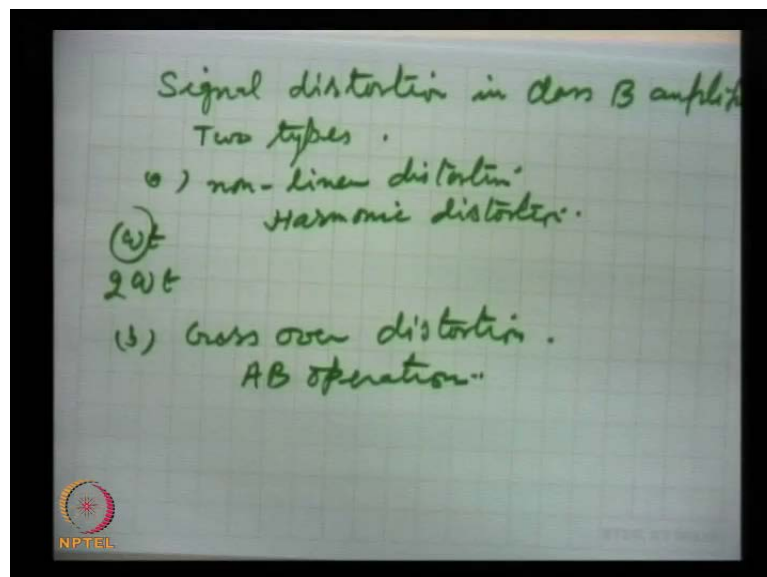 Signal distortion in class B amplif
Two types.
a) non-linear distortion
Harmonic distortion.
ωt
2ωt
(b) Cross over distortion.
AB operation..
NPTEL